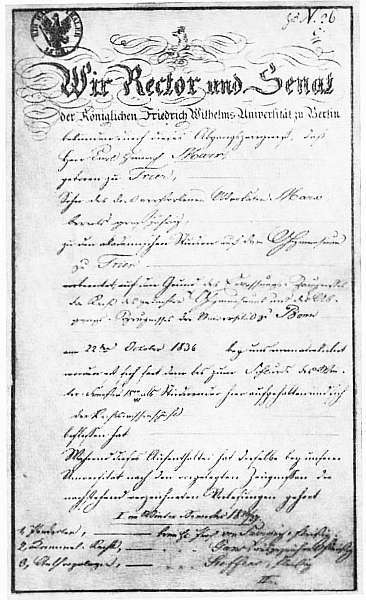 Wir Rector und Senat
der Königlichen Friedrich Wilhelms-Universität zu Berlin
bekennen durch dieses Abgangszeugniß, daß
Herr Carl Heinrich Marx
geboren zu Trier,
Sohn des Marx
zu den akademischen Studien auf dem Gymnasium
zu Trier
vorbereitet, auf den Grund des Zeugnisses
des gedachten Gymnasiums und des Ab-
gangs-Zeugnisses der Universität zu Bonn
am 22ten October 1836 bey uns immatriculirt
worden ist, sich seitdem bis zum Schlusse des Win-
als Studirender hier aufgehalten und sich
der Rechtswissenschaft
beflissen hat.
Während dieses Aufenthalts hat derselbe bey unserer
Universität nach den vorgelegten Zeugnissen die
nachstehend verzeichneten Vorlesungen gehört
I. im Winter Semester
1, Pandecten, — beim H. Prof. von Savigny, fleißig
2, Criminal-Recht, — Gans, ausgezeichnet fleißig
3, Anthropologie, — Steffens, fleißig
II.